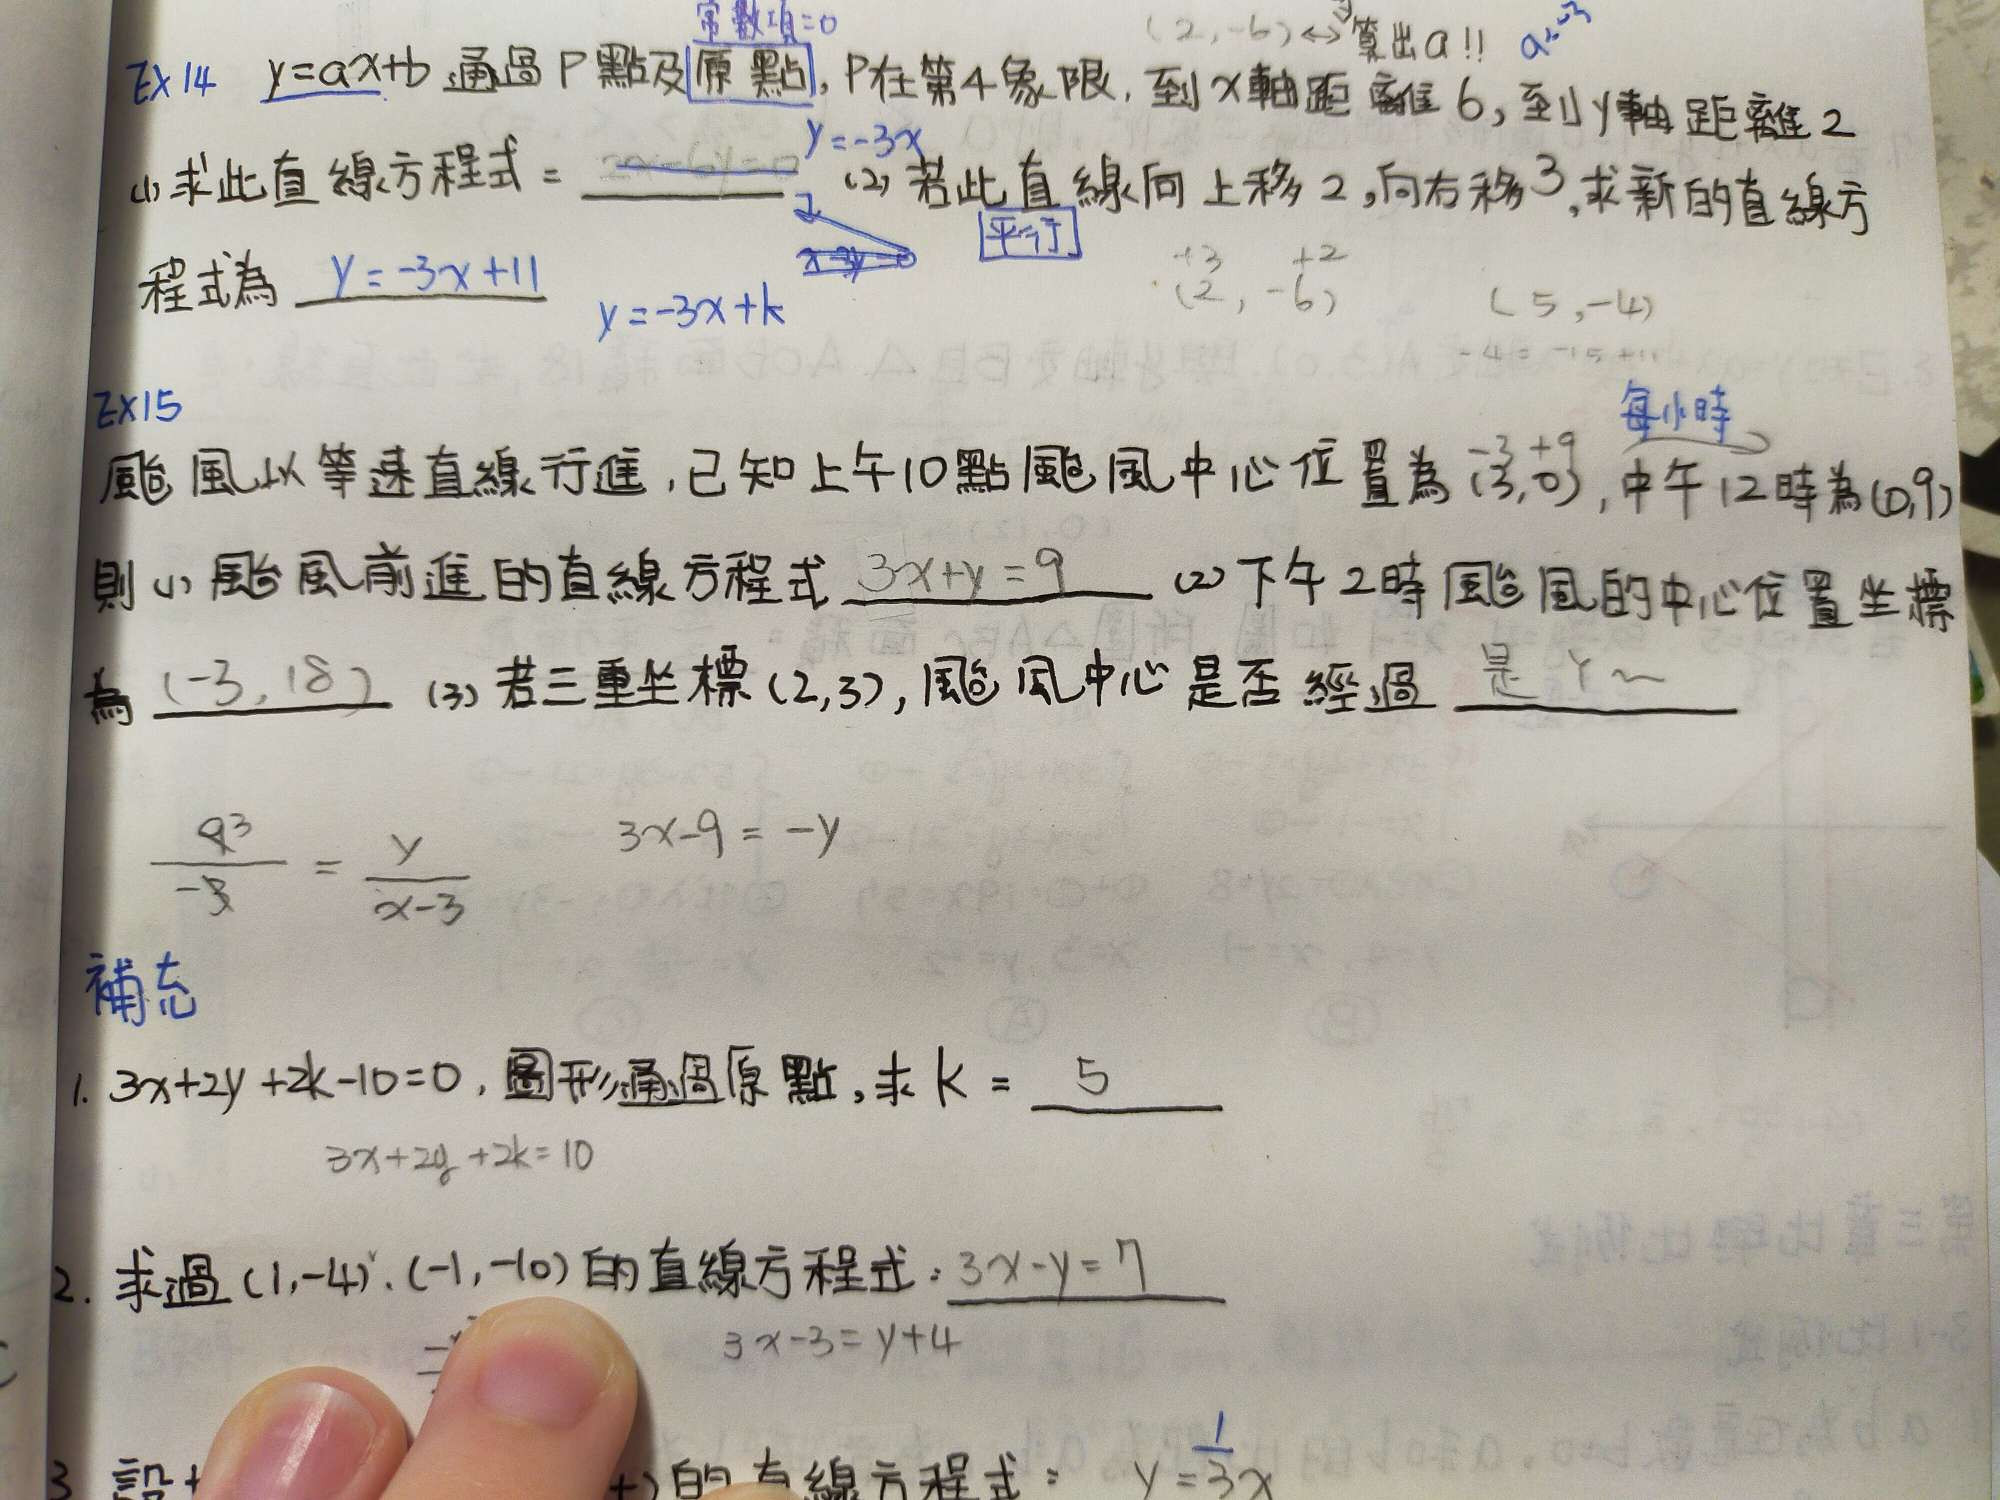 常數項=0
(2,-6)↔算出a!! a=-3
EX14 y=ax+b 通過P點及原點,P在第4象限,到x軸距離6,到y軸距離2
y=-3x
(1)求此直線方程式= (2)若此直線向上移2,向右移3,求新的直線方
平行
程式為 y=-3x+11
y=-3x+k
+3 +2
(2,-6) (5,-4)
-4=-15+11
EX15
每小時
-3 +9
颱風以等速直線行進,已知上午10點颱風中心位置為(3,0),中午12時為(0,9)
則(1)颱風前進的直線方程式 3x+y=9 (2)下午2時颱風的中心位置坐標
為 (-3,18) (3)若三重坐標(2,3),颱風中心是否經過 是
3x-9=-y
-3 = y/x-3
補充
1. 3x+2y+2k-10=0,圖形通過原點,求k= 5
3x+2y+2k=10
2. 求過(1,-4)、(-1,-10)的直線方程式: 3x-y=7
3x-3=y+4
3 設 的直線方程式: y=1/3x